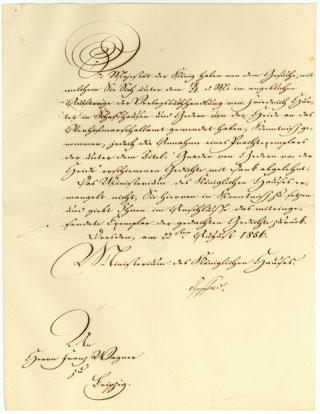 Se Majestät der König haben von dem Gesuche, mit
welchem Sie Sich unter dem d. M. im angeblichen
Auftrage der Verlagsbuchhandlung von Friedrich Hur-
ter in Schaffhausen und Gedeon von der Heide an das
Oberhofmarschallamt gewendet haben, Kenntniß ge-
nommen, jedoch die Annahme eines Prachtexemplars
der unter dem Titel: Gedeon von der
Heide erschienenen Gedichte mit Dank abgelehnt.
Das Ministerium des Königlichen Hauses er-
mangelt nicht, Sie hiervon in Kenntniß zu setzen
und giebt Ihnen im Anschlusse das miteinge-
sendete Exemplar der gedachten Gedichte zurück.
Dresden, am 22sten August 1851.
Ministerium des Königlichen Hauses.
An
Herrn Franz Wagner
zu
Leipzig.